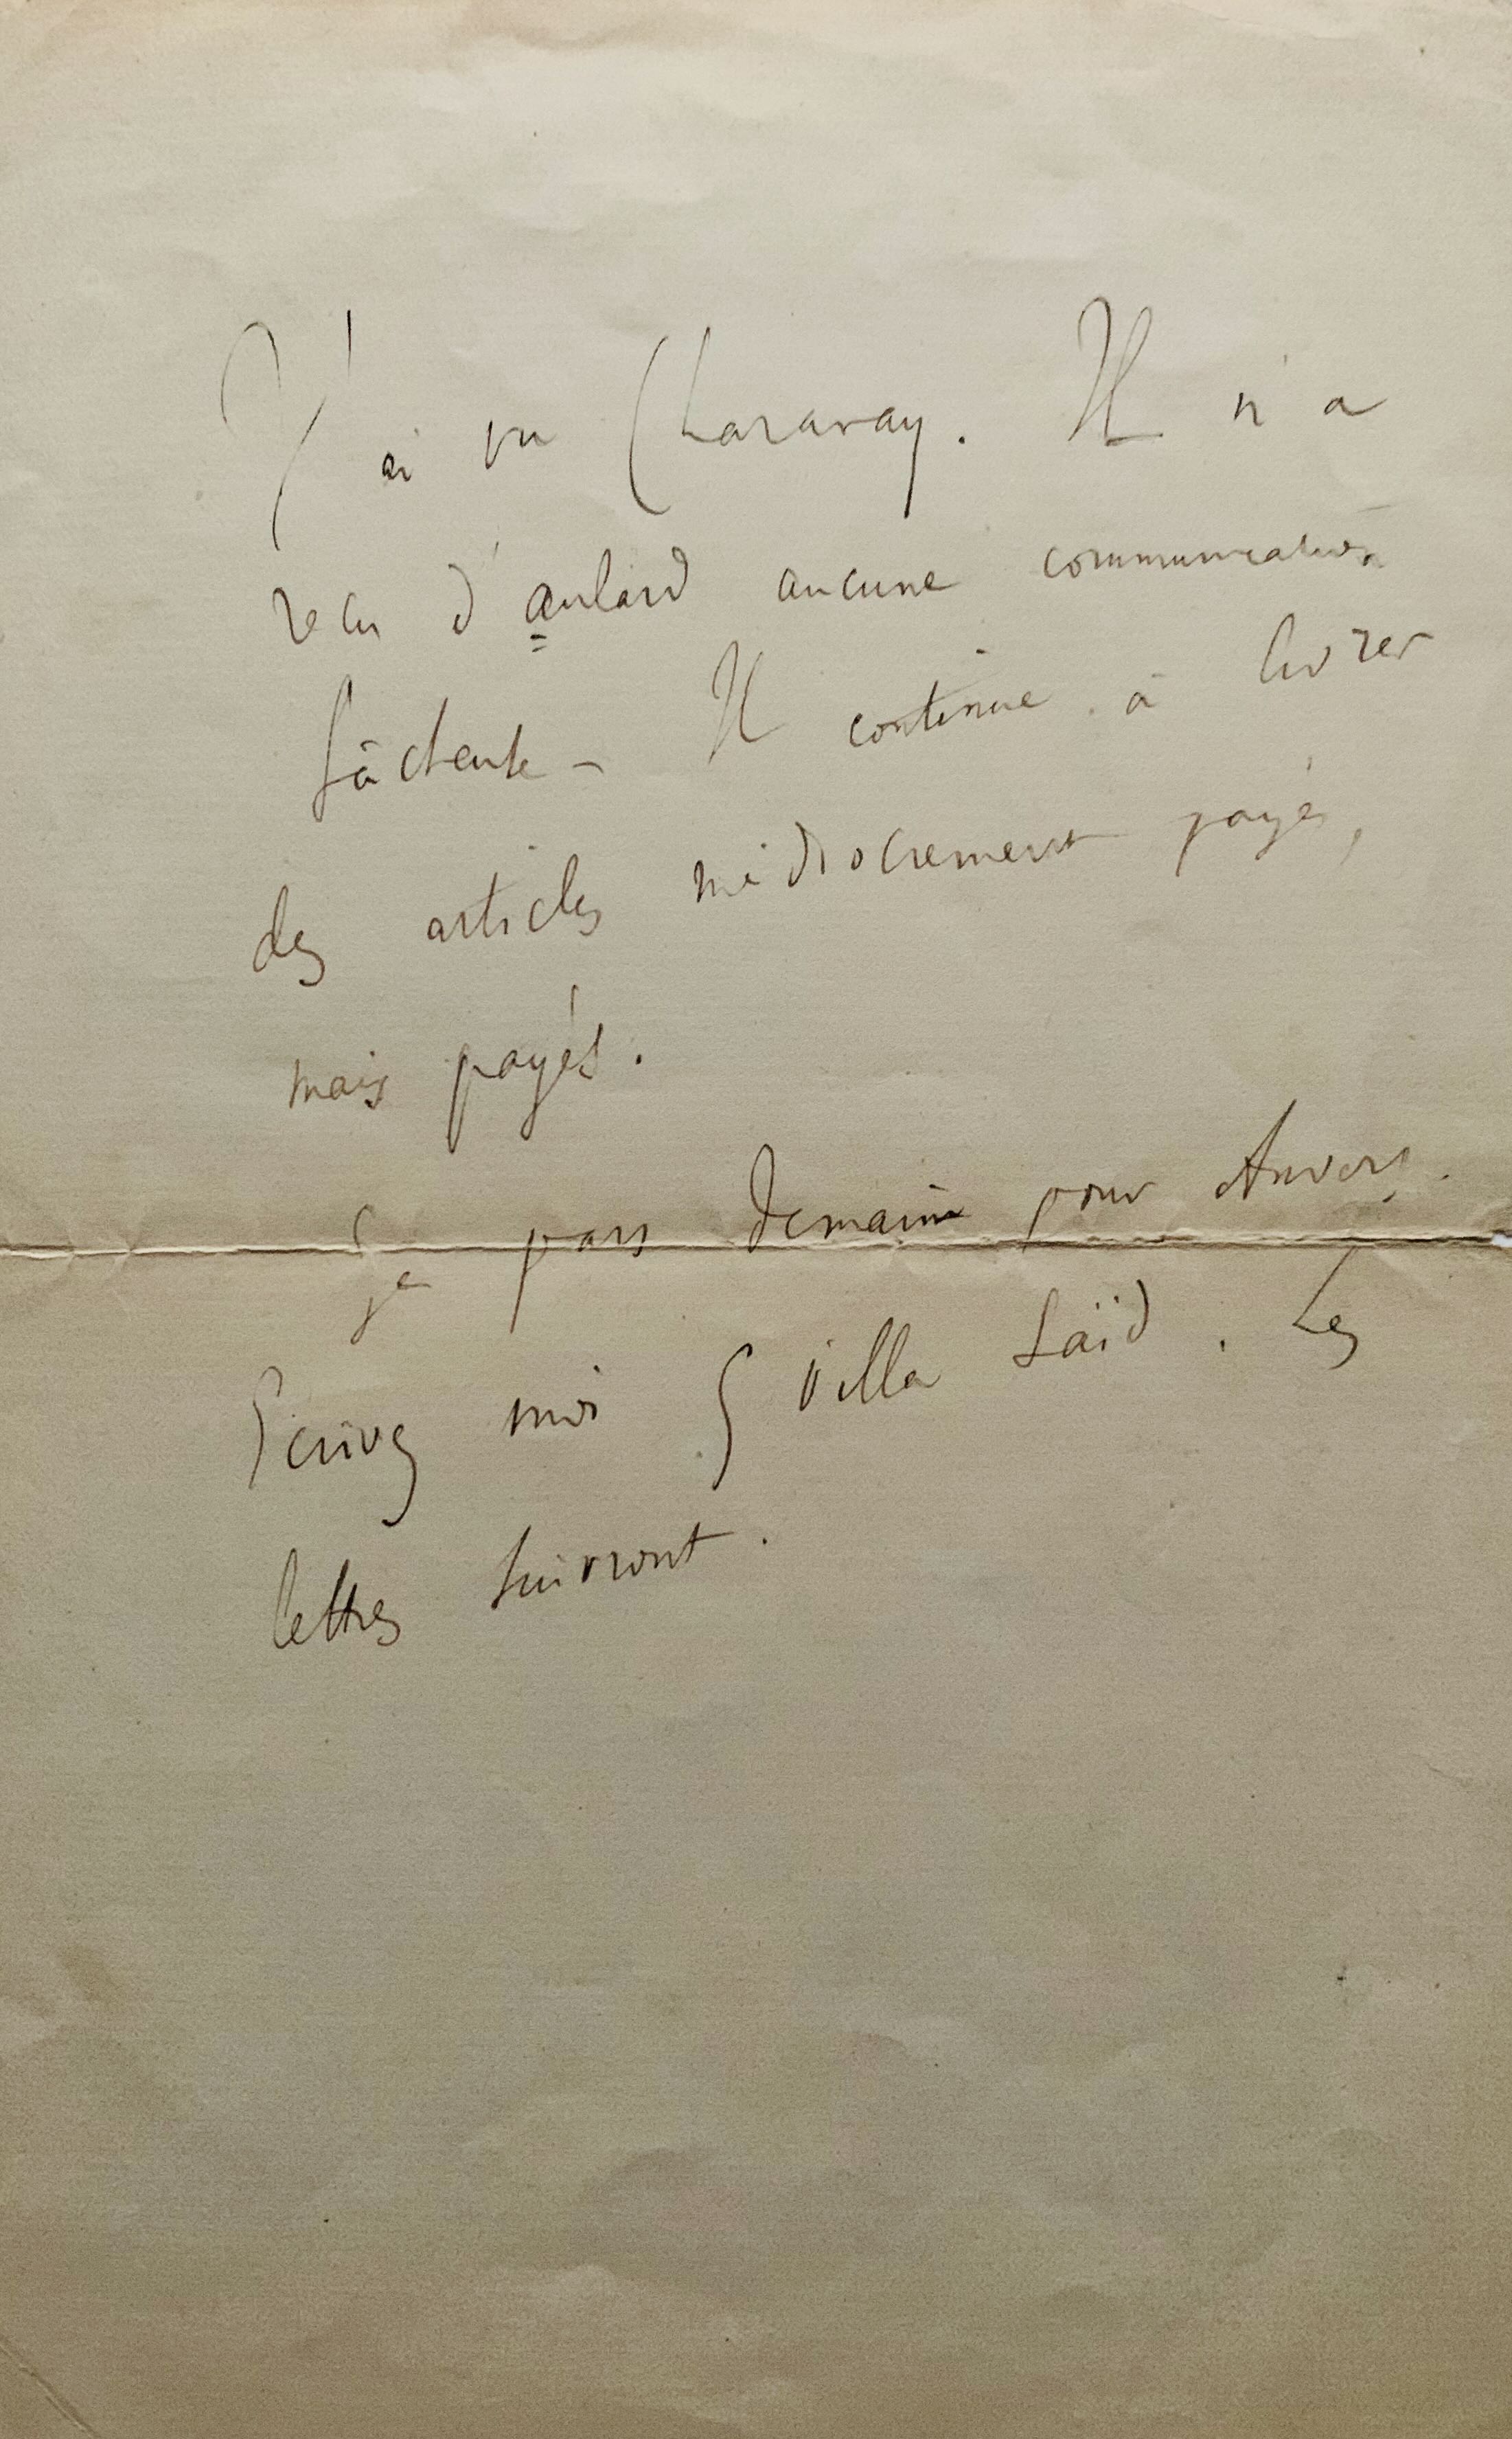 J'ai vu Charavay. Il n'a
reçu d'aulard aucune communication
fâcheuse – Il continue à livrer
des articles médiocrement payés,
mais payés.
je pars demain pour Anvers.
Ecrivez moi 5 villa Saïd. Les
lettres suivront.